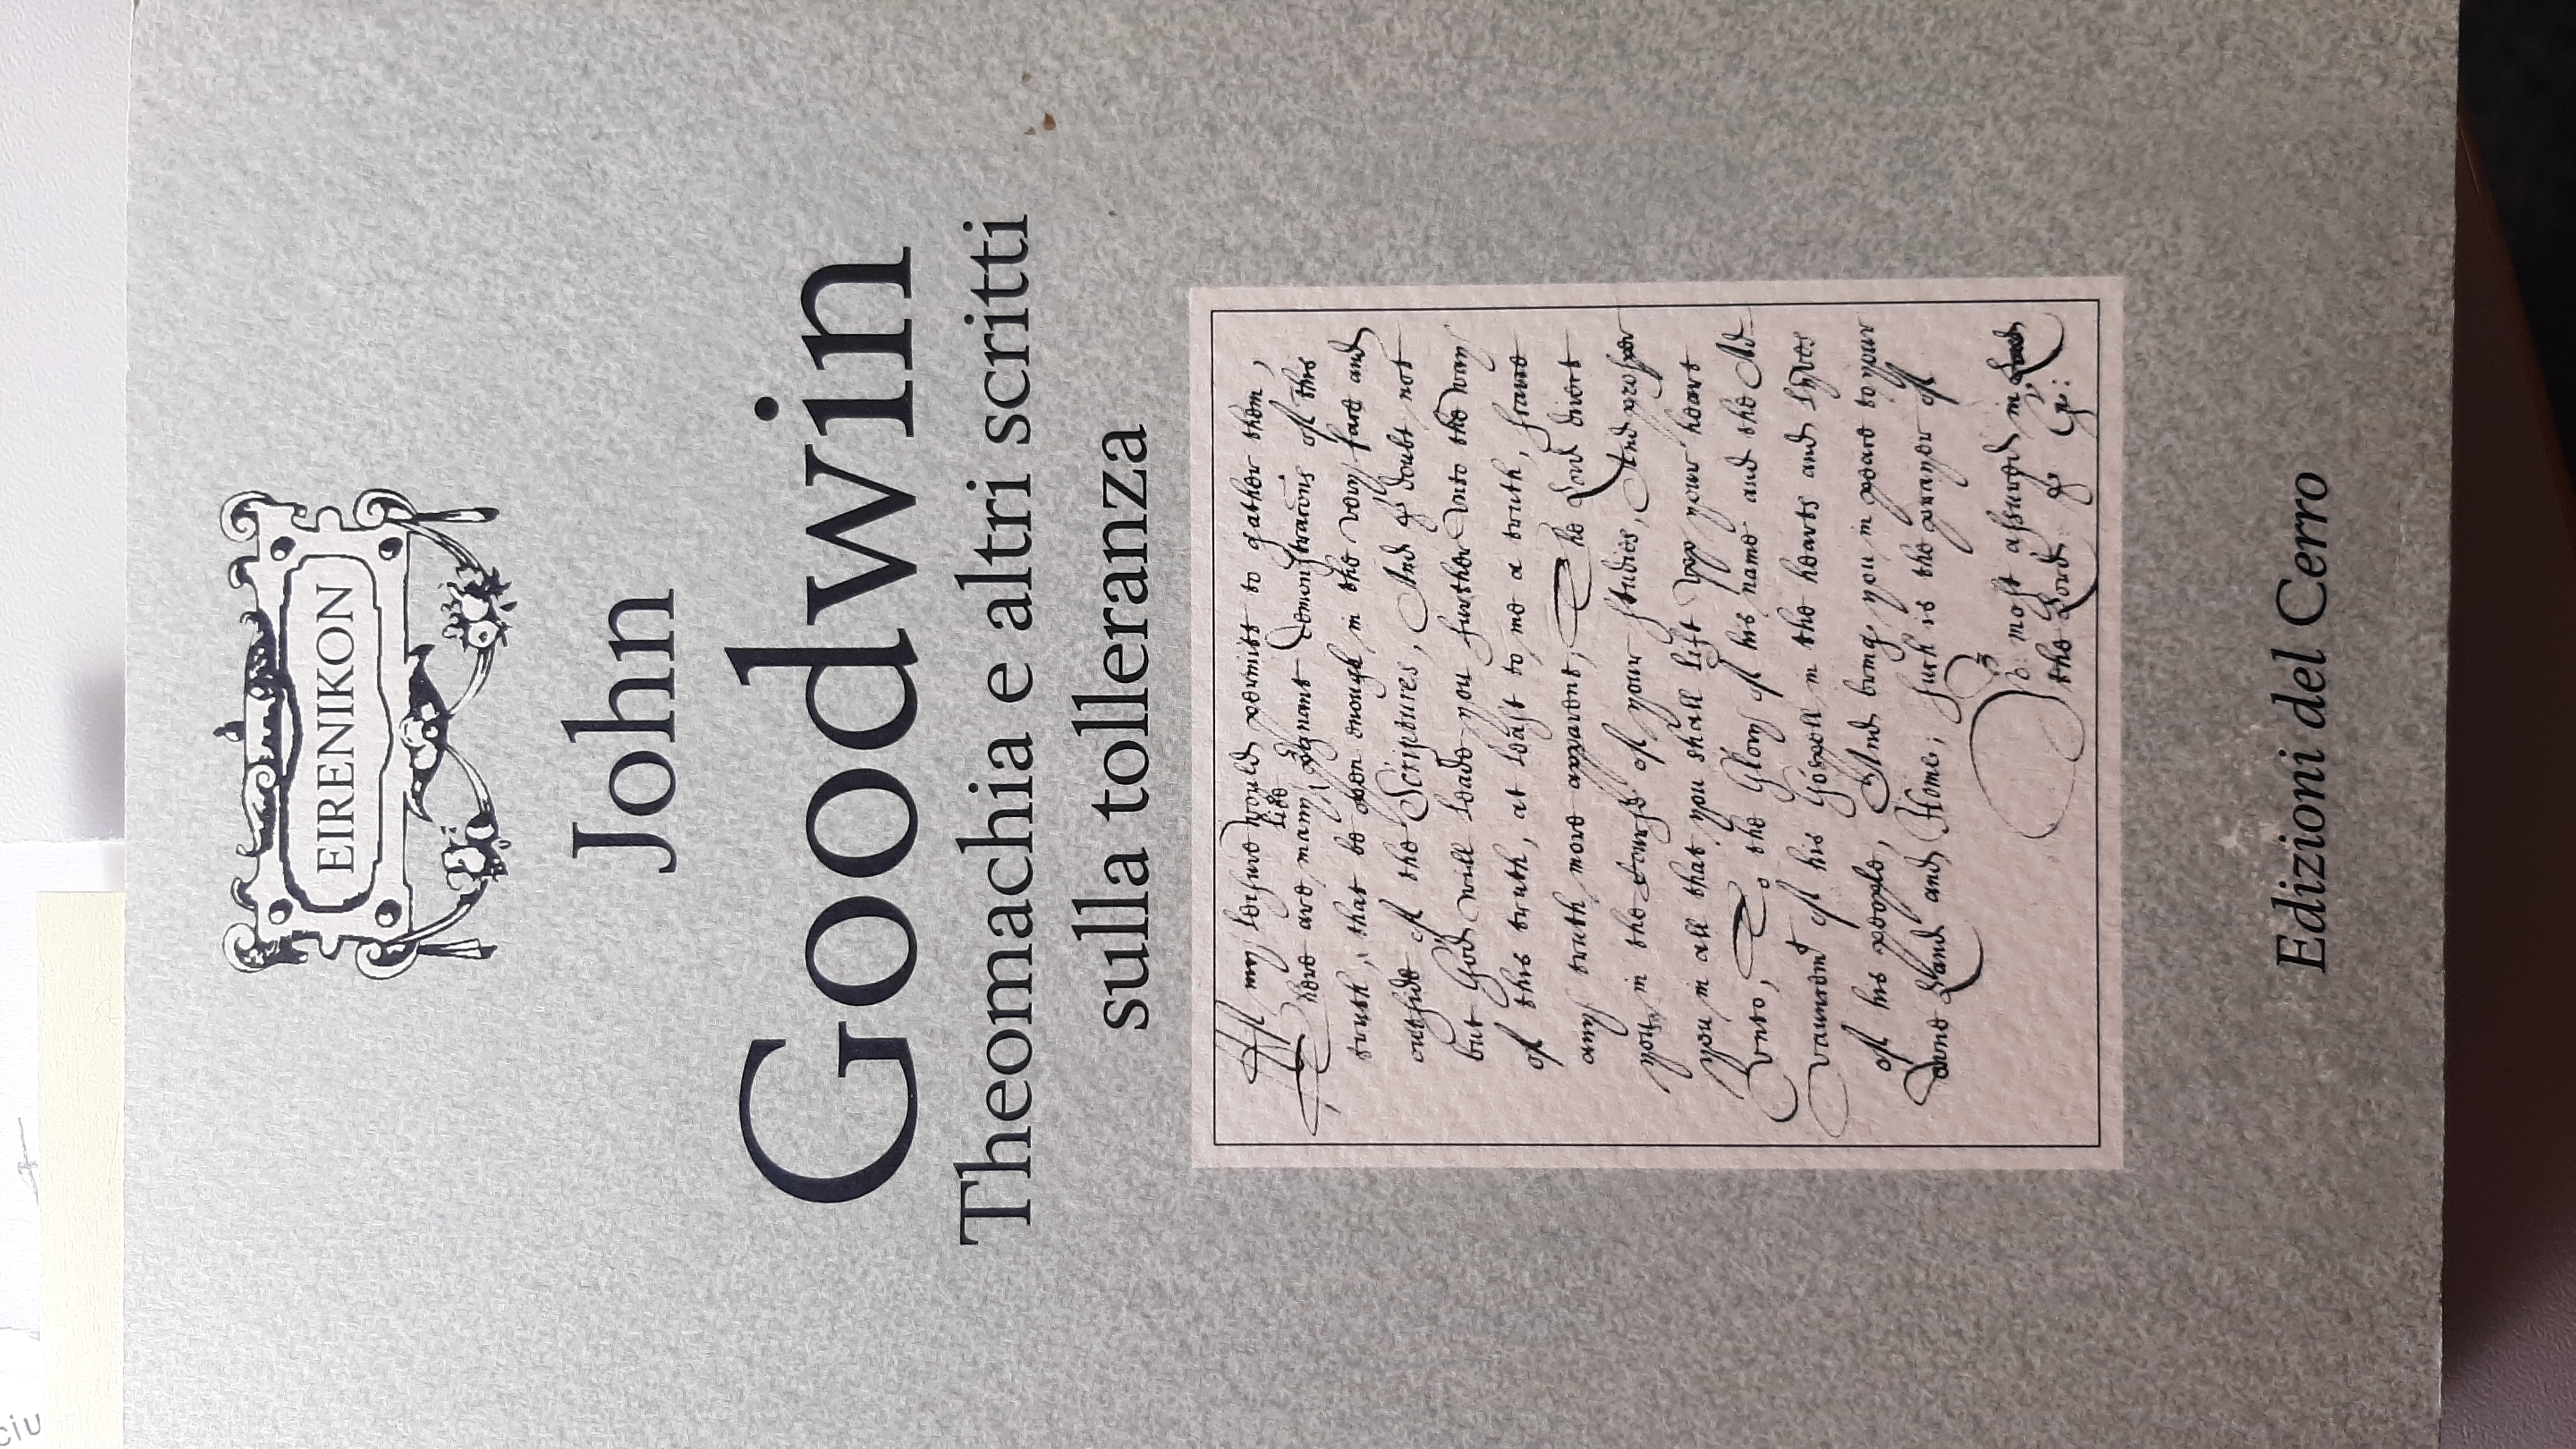 EIRENIKON
John
Goodwin
Theomachia e altri scritti
sulla tolleranza
If my leisure would permitt to gather them,
here are many pregnant demonstracions of this
lieo
truth, that be open enough in the very face and
outside of the Scriptures, And I doubt not
but God will leade you further unto the way
of this truth, at least to me a truth,
any truth more apparent, The Lord direct
you in the course of your studies, And prosper
you in all that you shall lift upp your heart
unto, to the Glory of his name and the Ad-
vauncemt of his Gospell in the hearts and lyves
of his people, And bring you in peace to your
owne Land and Home, such is the prayer of
most assured in
the Lord. J. G:
Edizioni del Cerro
ciu